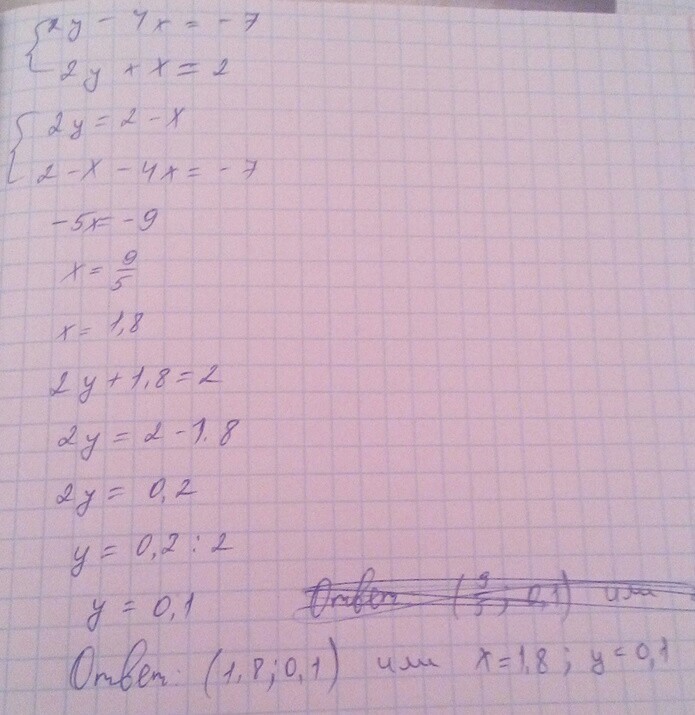 2y - 4x = -7
2y + x = 2
2y = 2 - x
2 - x - 4x = -7
-5x = -9
x = 9/5
x = 1,8
2y + 1,8 = 2
2y = 2 - 1.8
2y = 0,2
y = 0,2 : 2
y = 0,1
Ответ (9/5; 0,1) или
Ответ: (1,8; 0,1) или x = 1,8; y = 0,1